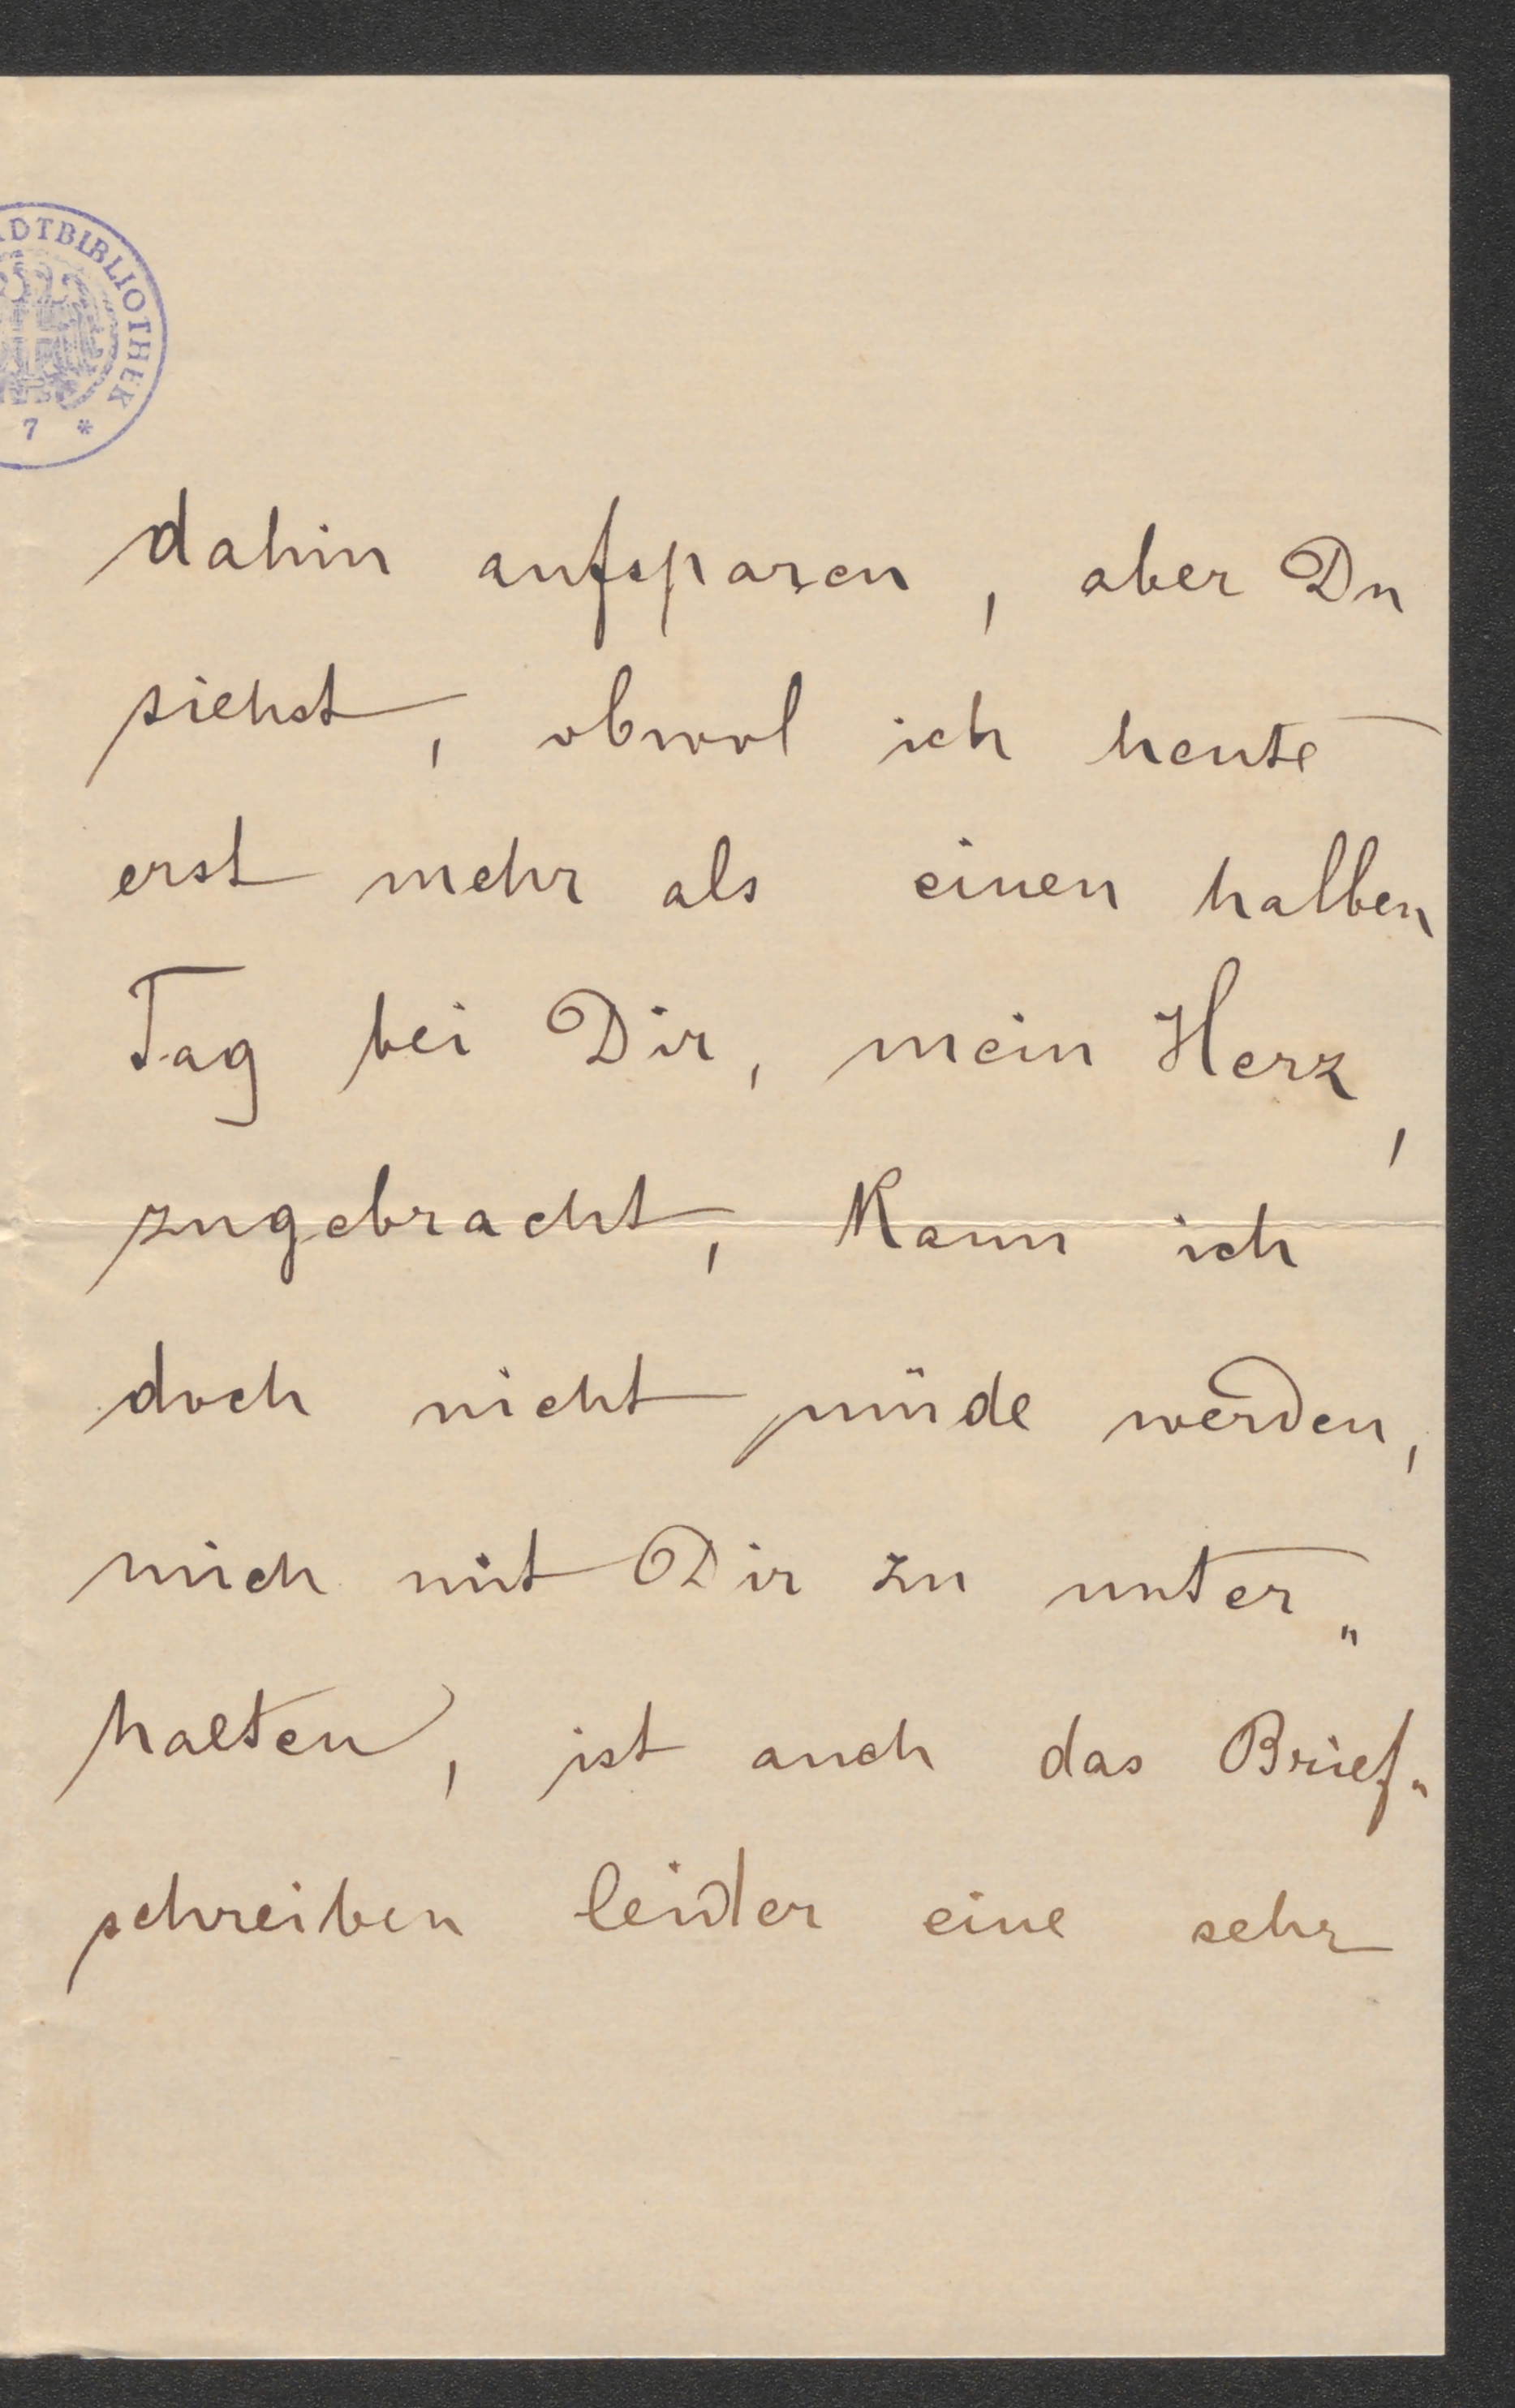 ADTBIBLIOTHEK
7 *
dahin aufsparen, aber Du
siehst, obwol ich heute
erst mehr als einen halben
Tag bei Dir, mein Herz,
zugebracht, kann ich
doch nicht müde werden,
mich mit Dir zu unter„
halten, ist auch das Brief„
schreiben leider eine sehr